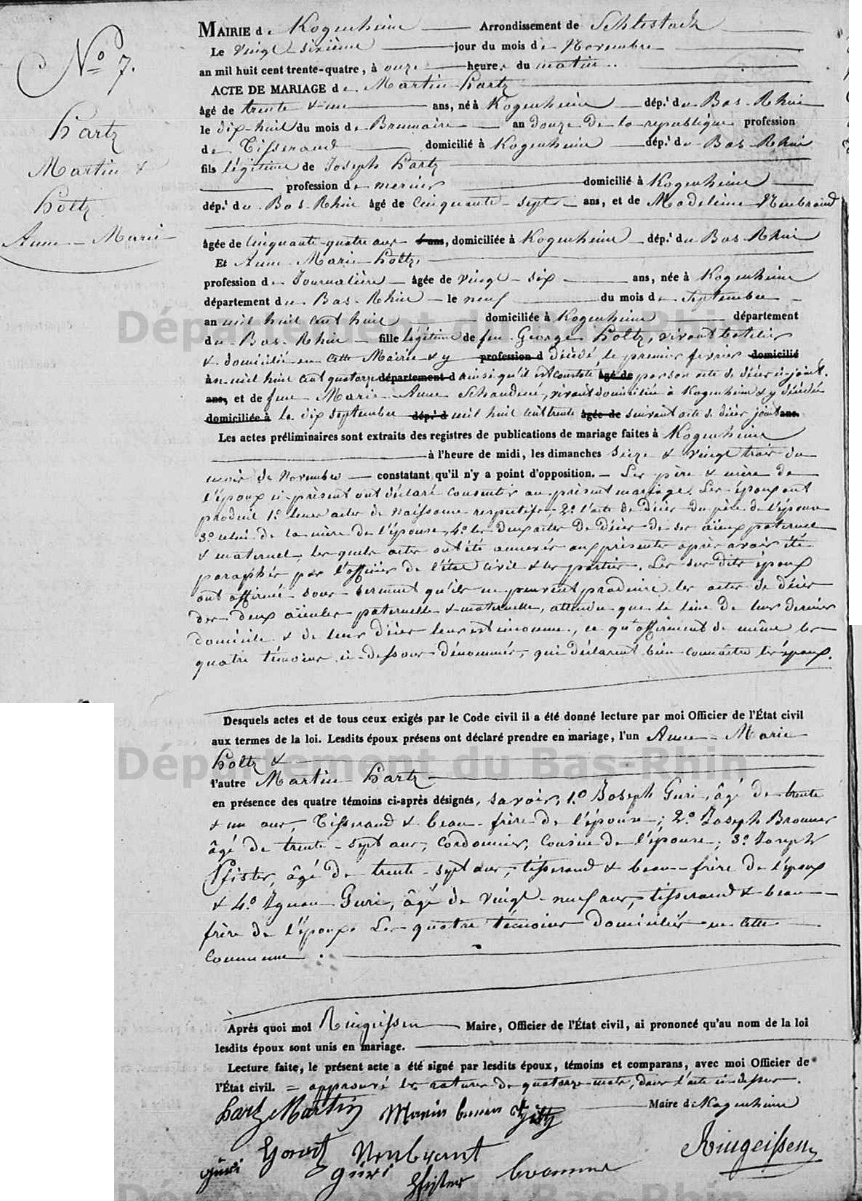 N.o 7.
Hartz
Martin &
Holtz
Anne-Marie
MAIRIE de Kogenheim Arrondissement de Schlestadt
Le vingt sixième jour du mois de Novembre
an mil huit cent trente-quatre, à onze heure. du matin.
ACTE DE MARIAGE de Martin Hartz
âgé de trente & un ans, né à Kogenheim dép.t du Bas-Rhin
le dix-huit du mois de Brumaire an douze de la république profession
de Tisserand domicilié à Kogenheim dép.t du Bas Rhin
fils légitime de Joseph Hartz
profession de mercier domicilié à Kogenheim
dép.t du Bas-Rhin âgé de cinquante-sept ans, et de Madeleine Neubrand
âgée de cinquante-quatre ans, domiciliée à Kogenheim dép.t du Bas-Rhin
Et Anne Marie Holtz,
profession de Journalière âgée de vingt-six ans, née à Kogenheim
département du Bas-Rhin le neuf du mois de Septembre
an mil huit cent huit domiciliée à Kogenheim département
du Bas-Rhin fille légitime de feu George Holtz, vivant batelier
& domicilié en cette Mairie & y profession d décédé, le premier février domicilié
an mil huit cent quatorze département d ainsi qu'il est constaté âgé de par son acte de décès ci-joint.
ans, et de feue Marie-Anne Schaudene, vivant domiciliée à Kogenheim & y décédée
domiciliée à le dix septembre dép.t d mil huit cent trente âgée de suivant acte de décès joint ans.
Les actes préliminaires sont extraits des registres de publications de mariage faites à Kogenheim
à l'heure de midi, les dimanches seize & vingt trois du
mois de Novembre constatant qu'il n'y a point d'opposition. Les père & mère de
l'époux ci-présent ont déclaré consentir au présent mariage. Les époux ont
produit 1.o leurs actes de naissance respectifs 2.o l'acte de décès du père de l'épouse
3.o celui de la mère de l'épouse, 4.o les deux actes de décès de ses aïeux paternel
& maternel, les quels actes ont été annexés aux présentes après avoir été
paraphés par l'officier de l'état civil & les parties. Les sus dits époux
ont affirmé sous serment qu'ils ne peuvent produire les actes de décès
des deux aïeules paternelle & maternelle, attendu que le lieu de leur dernier
domicile & de leur décès leur est inconnu, ce qu'affirment de même les
quatre témoins ci-dessous dénommés, qui déclarent bien connaître les époux.
Desquels actes et de tous ceux exigés par le Code civil il a été donné lecture par moi Officier de l'État civil
aux termes de la loi. Lesdits époux présens ont déclaré prendre en mariage, l'un Anne-Marie
Holtz &
l'autre Martin Hartz
en présence des quatre témoins ci-après désignés, savoir, 1.o Joseph Guri, âgé de trente
& un ans, Tisserand & beau-frère de l'épouse; 2.o Joseph Bronner
âgé de trente-sept ans, cordonnier, cousin de l'épouse; 3.o Joseph
Pfister, âgé de trente-sept ans, tisserand & beau-frère de l'époux
& 4.o Ignace Guri, âgé de vingt-neuf ans, tisserand & beau-
frère de l'époux. Les quatre témoins domiciliés en cette
commune.
Après quoi moi Ringeissen Maire, Officier de l'État civil, ai prononcé qu'au nom de la loi
lesdits époux sont unis en mariage.
Lecture faite, le présent acte a été signé par lesdits époux, témoins et comparans, avec moi Officier de
l'État civil. = approuvé les ratures de quatorze mots, dans l'acte ci-dessus.
Hartz Martin
Maire de Kogenheim
Neubrand
Ringeissen
güri
güri
Pfister
Département du Bas-Rhin
Département du Bas-Rhin
Département du Bas-Rhin